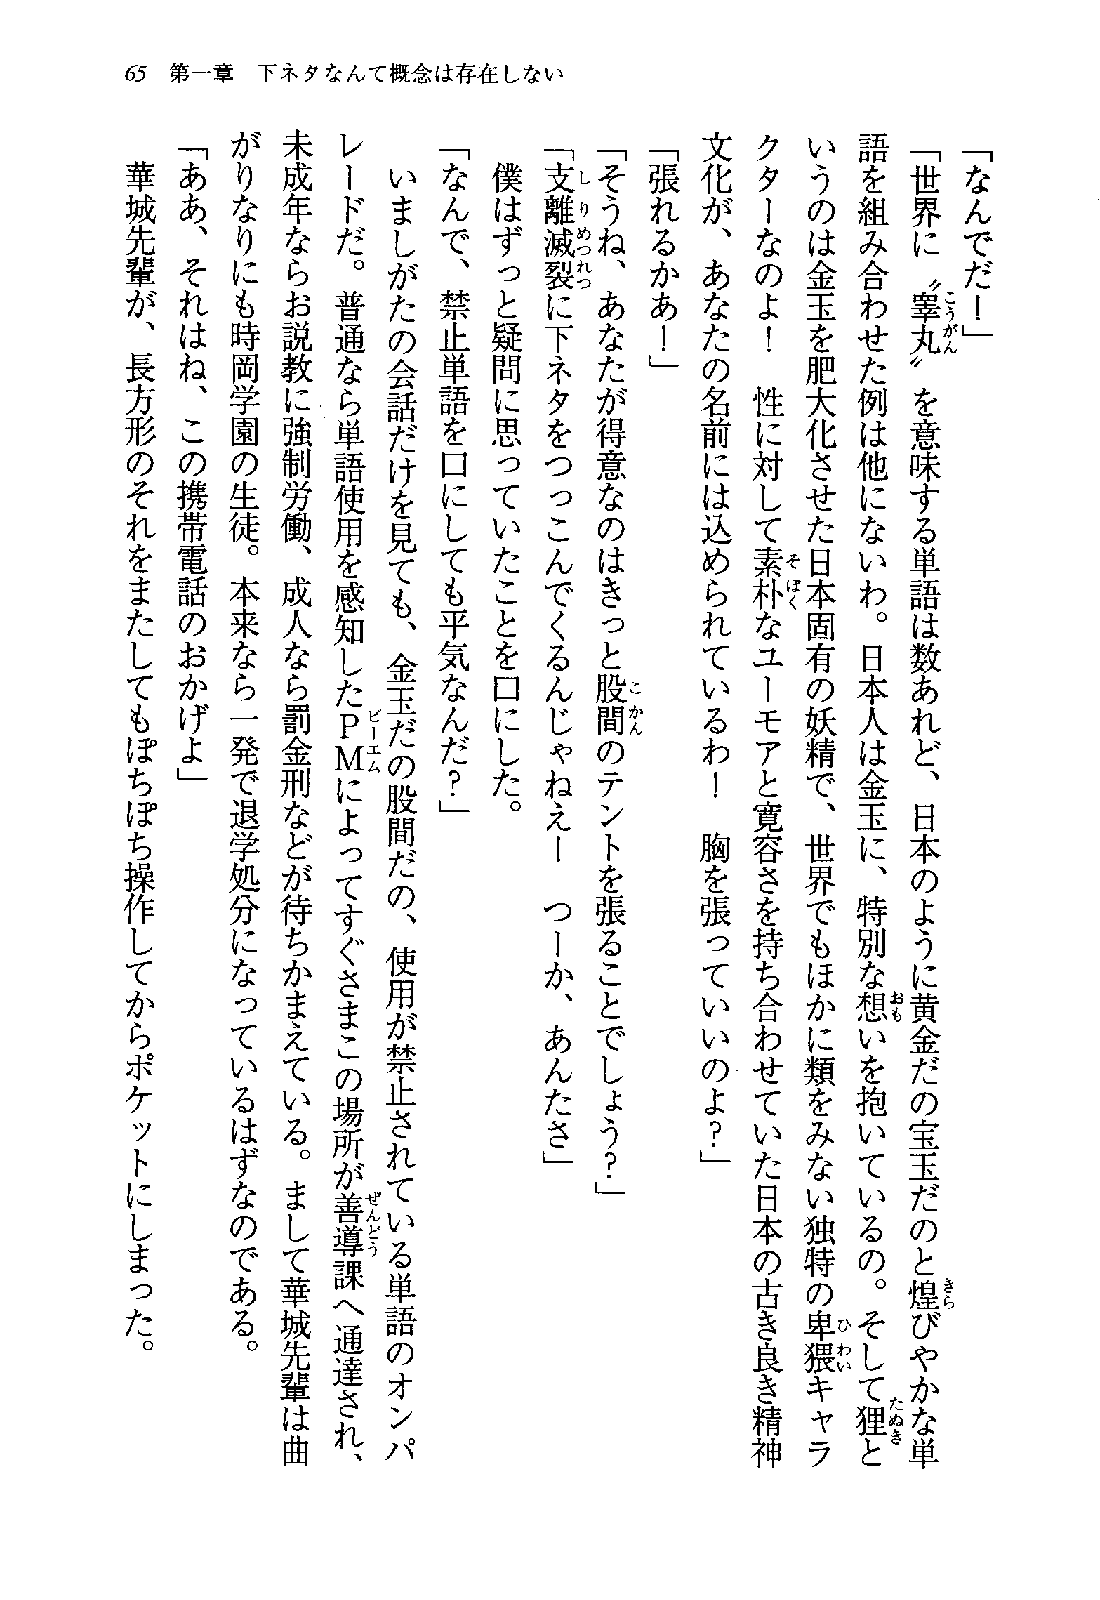 65　第一章　下ネタなんて概念は存在しない
「なんでだー」
「世界に〝睾丸〟を意味する単語は数あれど、日本のように黄金だの宝玉だのと煌びやかな単
語を組み合わせた例は他にないわ。日本人は金玉に、特別な想いを抱いているの。そして狸と
いうのは金玉を肥大化させた日本固有の妖精で、世界でもほかに類をみない独特の卑猥キャラ
クターなのよ！　性に対して素朴なユーモアと寛容さを持ち合わせていた日本の古き良き精神
文化が、あなたの名前には込められているわー　胸を張っていいのよ？」
「張れるかあー」
「そうね、あなたが得意なのはきっと股間のテントを張ることでしょう？」
「支離滅裂に下ネタをつっこんでくるんじゃねえー　つーか、あんたさ」
　僕はずっと疑問に思っていたことを口にした。
「なんで、禁止単語を口にしても平気なんだ？」
　いましがたの会話だけを見ても、金玉だの股間だの、使用が禁止されている単語のオンパ
レードだ。普通なら単語使用を感知したＰＭによってすぐさまこの場所が善導課へ通達され、
未成年ならお説教に強制労働、成人なら罰金刑などが待ちかまえている。まして華城先輩は曲
がりなりにも時岡学園の生徒。本来なら一発で退学処分になっているはずなのである。
「ああ、それはね、この携帯電話のおかげよ」
　華城先輩が、長方形のそれをまたしてもぽちぽち操作してからポケットにしまった。